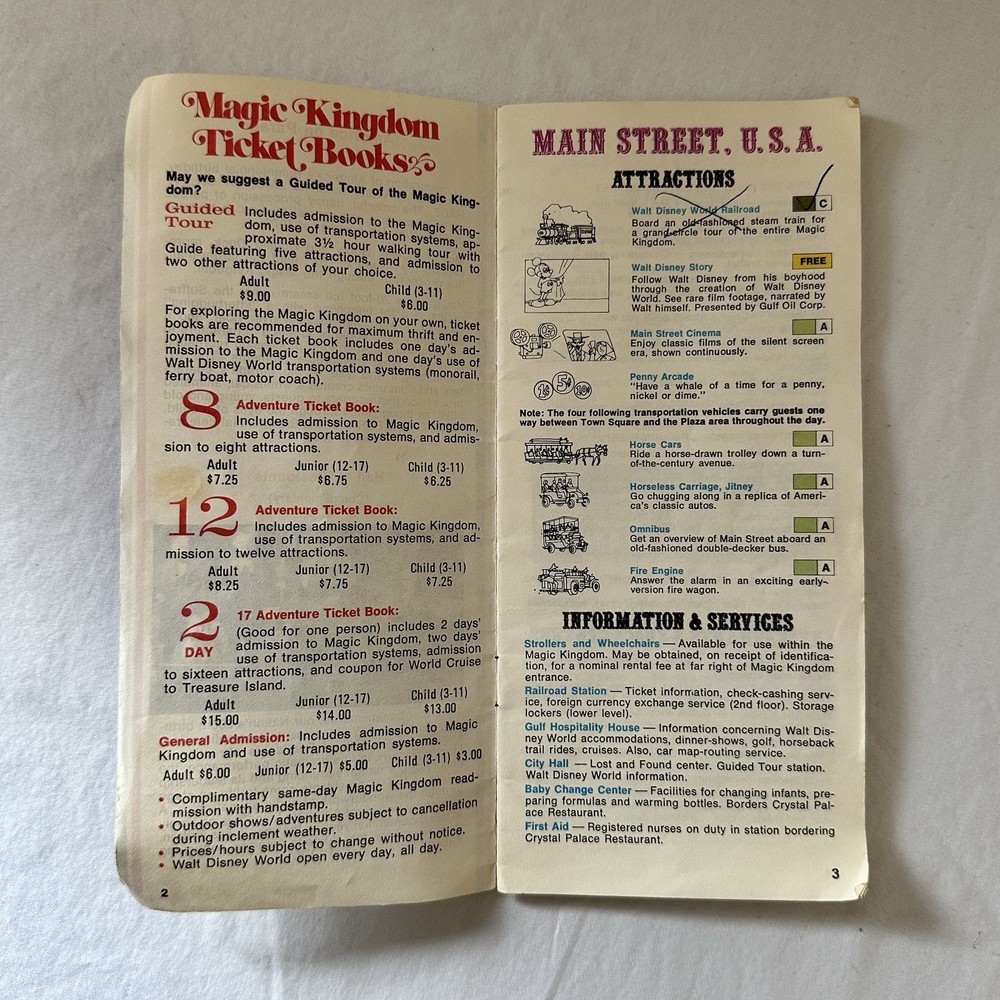 Magic Kingdom
Ticket Books
May we suggest a Guided Tour of the Magic King-
dom?
Guided
Tour
Includes admission to the Magic King-
dom, use of transportation systems, ap-
proximate 3½ hour walking tour with
Guide featuring five attractions, and admission to
two other attractions of your choice.
Adult Child (3-11)
$9.00 $6.00
For exploring the Magic Kingdom on your own, ticket
books are recommended for maximum thrift and en-
joyment. Each ticket book includes one day's ad-
mission to the Magic Kingdom and one day's use of
Walt Disney World transportation systems (monorail,
ferry boat, motor coach).
8 Adventure Ticket Book:
Includes admission to Magic Kingdom,
use of transportation systems, and admis-
sion to eight attractions.
Adult Junior (12-17) Child (3-11)
$7.25 $6.75 $6.25
12 Adventure Ticket Book:
Includes admission to Magic Kingdom,
use of transportation systems, and ad-
mission to twelve attractions.
Adult Junior (12-17) Child (3-11)
$8.25 $7.75 $7.25
2
DAY
17 Adventure Ticket Book:
(Good for one person) includes 2 days'
admission to Magic Kingdom, two days'
use of transportation systems, admission
to sixteen attractions, and coupon for World Cruise
to Treasure Island.
Adult Junior (12-17) Child (3-11)
$15.00 $14.00 $13.00
General Admission: Includes admission to Magic
Kingdom and use of transportation systems.
Adult $6.00 Junior (12-17) $5.00 Child (3-11) $3.00
• Complimentary same-day Magic Kingdom read-
mission with handstamp.
• Outdoor shows/adventures subject to cancellation
during inclement weather.
• Prices/hours subject to change without notice.
• Walt Disney World open every day, all day.
2
MAIN STREET, U.S.A.
ATTRACTIONS
Walt Disney World Railroad C
Board an old-fashioned steam train for
a grand-circle tour of the entire Magic
Kingdom.
Walt Disney Story FREE
Follow Walt Disney from his boyhood
through the creation of Walt Disney
World. See rare film footage, narrated by
Walt himself. Presented by Gulf Oil Corp.
Main Street Cinema A
Enjoy classic films of the silent screen
era, shown continuously.
1¢ 5¢ 10¢
Penny Arcade
"Have a whale of a time for a penny,
nickel or dime."
Note: The four following transportation vehicles carry guests one
way between Town Square and the Plaza area throughout the day.
Horse Cars A
Ride a horse-drawn trolley down a turn-
of-the-century avenue.
Horseless Carriage, Jitney A
Go chugging along in a replica of Ameri-
ca's classic autos.
Omnibus A
Get an overview of Main Street aboard an
old-fashioned double-decker bus.
Fire Engine A
Answer the alarm in an exciting early-
version fire wagon.
INFORMATION & SERVICES
Strollers and Wheelchairs — Available for use within the
Magic Kingdom. May be obtained, on receipt of identifica-
tion, for a nominal rental fee at far right of Magic Kingdom
entrance.
Railroad Station — Ticket information, check-cashing serv-
ice, foreign currency exchange service (2nd floor). Storage
lockers (lower level).
Gulf Hospitality House — Information concerning Walt Dis-
ney World accommodations, dinner-shows, golf, horseback
trail rides, cruises. Also, car map-routing service.
City Hall — Lost and Found center. Guided Tour station.
Walt Disney World information.
Baby Change Center — Facilities for changing infants, pre-
paring formulas and warming bottles. Borders Crystal Pal-
ace Restaurant.
First Aid — Registered nurses on duty in station bordering
Crystal Palace Restaurant.
3